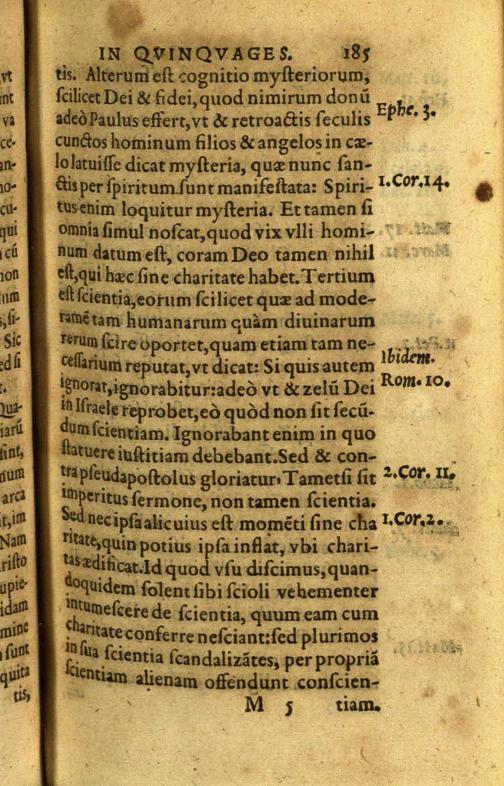 IN QVINQVAGES. 185
tis. Alterum eſt cognitio myſteriorum,
ſcilicet Dei & fidei, quod nimirum donū
adeò Paulus effert, vt & retroactis ſeculis
Ephe. 3.
cunctos hominum filios & angelos in cæ-
lo latuiſſe dicat myſteria, quæ nunc ſan-
ctis per ſpiritum ſunt manifeſtata: Spiri-
1.Cor.14.
tus enim loquitur myſteria. Et tamen ſi
omnia ſimul noſcat, quod vix vlli homi-
num datum eſt, coram Deo tamen nihil
eſt, qui hæc ſine charitate habet. Tertium
eſt ſcientia, eorum ſcilicet quæ ad mode-
ramē tam humanarum quàm diuinarum
rerum ſcire oportet, quam etiam tam ne-
ceſſarium reputat, vt dicat: Si quis autem
Ibidem.
ignorat, ignorabitur: adeò vt & zelū Dei
Rom. 10.
in Iſraele reprobet, eò quòd non ſit ſecū-
dum ſcientiam. Ignorabant enim in quo
ſtatuere iuſtitiam debebant. Sed & con-
tra pſeudapoſtolus gloriatur, Tametſi ſit
2.Cor. 11.
imperitus ſermone, non tamen ſcientia.
Sed nec ipſa alicuius eſt momēti ſine cha
1.Cor.2.
ritate, quin potius ipſa inflat, vbi chari-
tas ædificat. Id quod vſu diſcimus, quan-
doquidem ſolent ſibi ſcioli vehementer
intumeſcere de ſcientia, quum eam cum
charitate conferre neſciant: ſed plurimos
in ſua ſcientia ſcandalizātes, per propriā
ſcientiam alienam offendunt conſcien-
M 5 tiam.